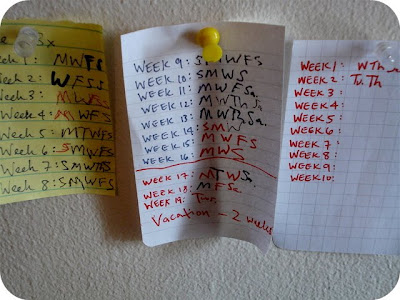 Week 1: MWFS
Week 2: WFSS
Week 3: MWFS
Week 4: MWFS
Week 5: MTWFS
Week 6: SMWFS
Week 7: SMWFS
Week 8: SMWFS
WEEK 9: SMWFS
WEEK 10: SMWS
WEEK 11: MWFSa
WEEK 12: MWThSa
WEEK 13: MWThSa.
WEEK 14: SMW
WEEK 15: MWFS
WEEK 16: MWS
WEEK 17: MTWSa
WEEK 18: MFSa
WEEK 19: Tues.
Vacation - 2 weeks
WEEK 1: WTh
WEEK 2: Tu.Th
WEEK 3:
WEEK 4:
WEEK 5:
WEEK 6:
WEEK 7:
WEEK 8:
WEEK 9:
WEEK 10: